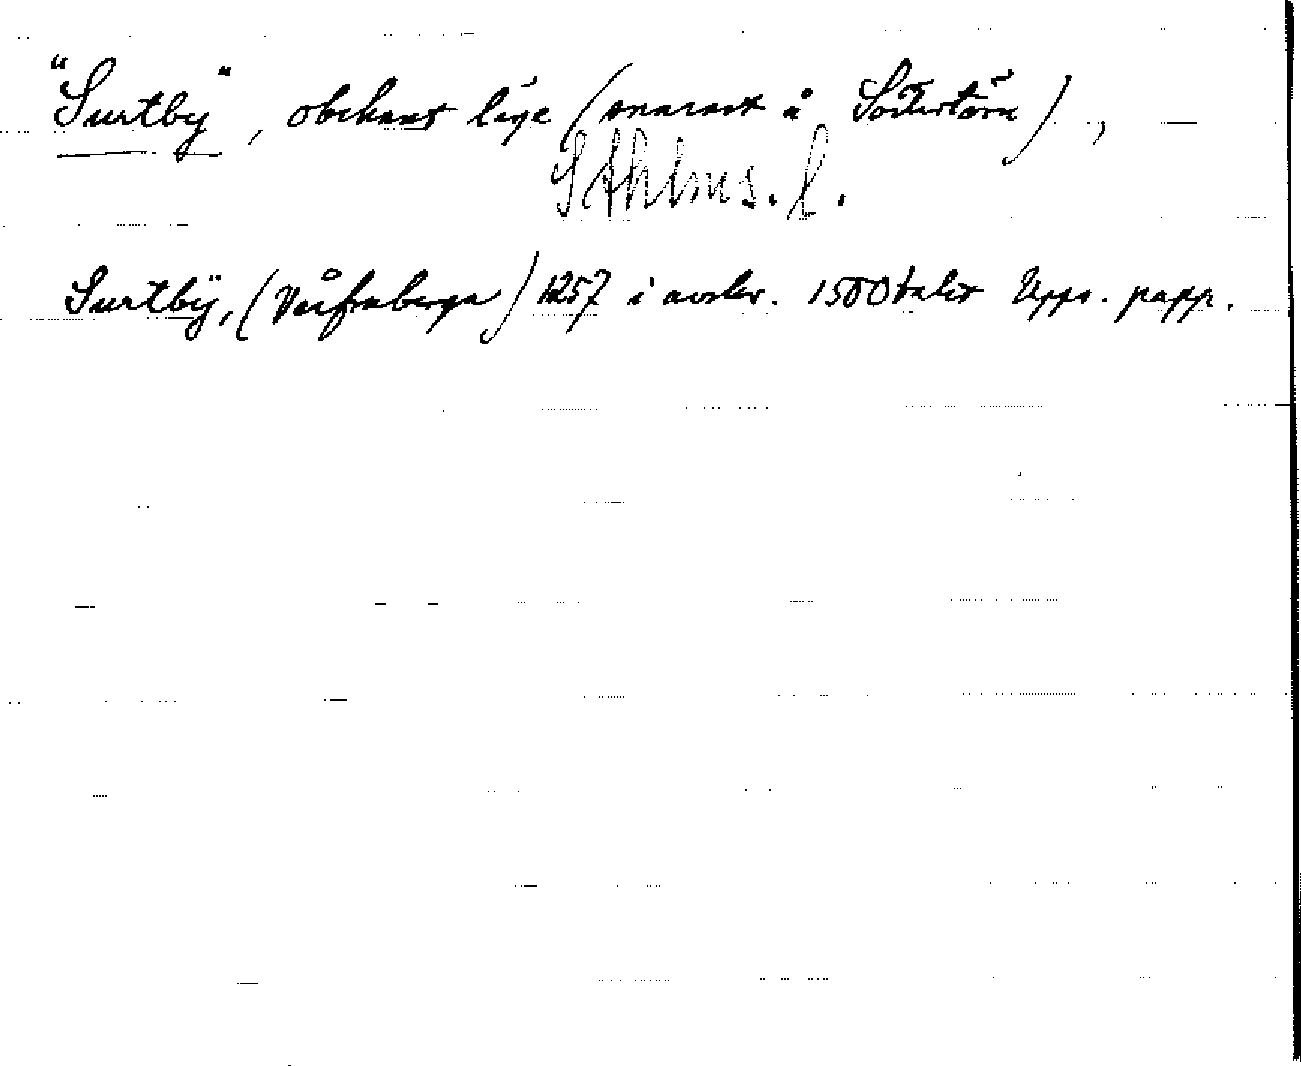 "Surtby", obekant läge (snarast å Södertörn),
Sthlms. l.
Surtbÿ, (Vårfruberga) 1257 i avskr. 1500talet Upps. papp.